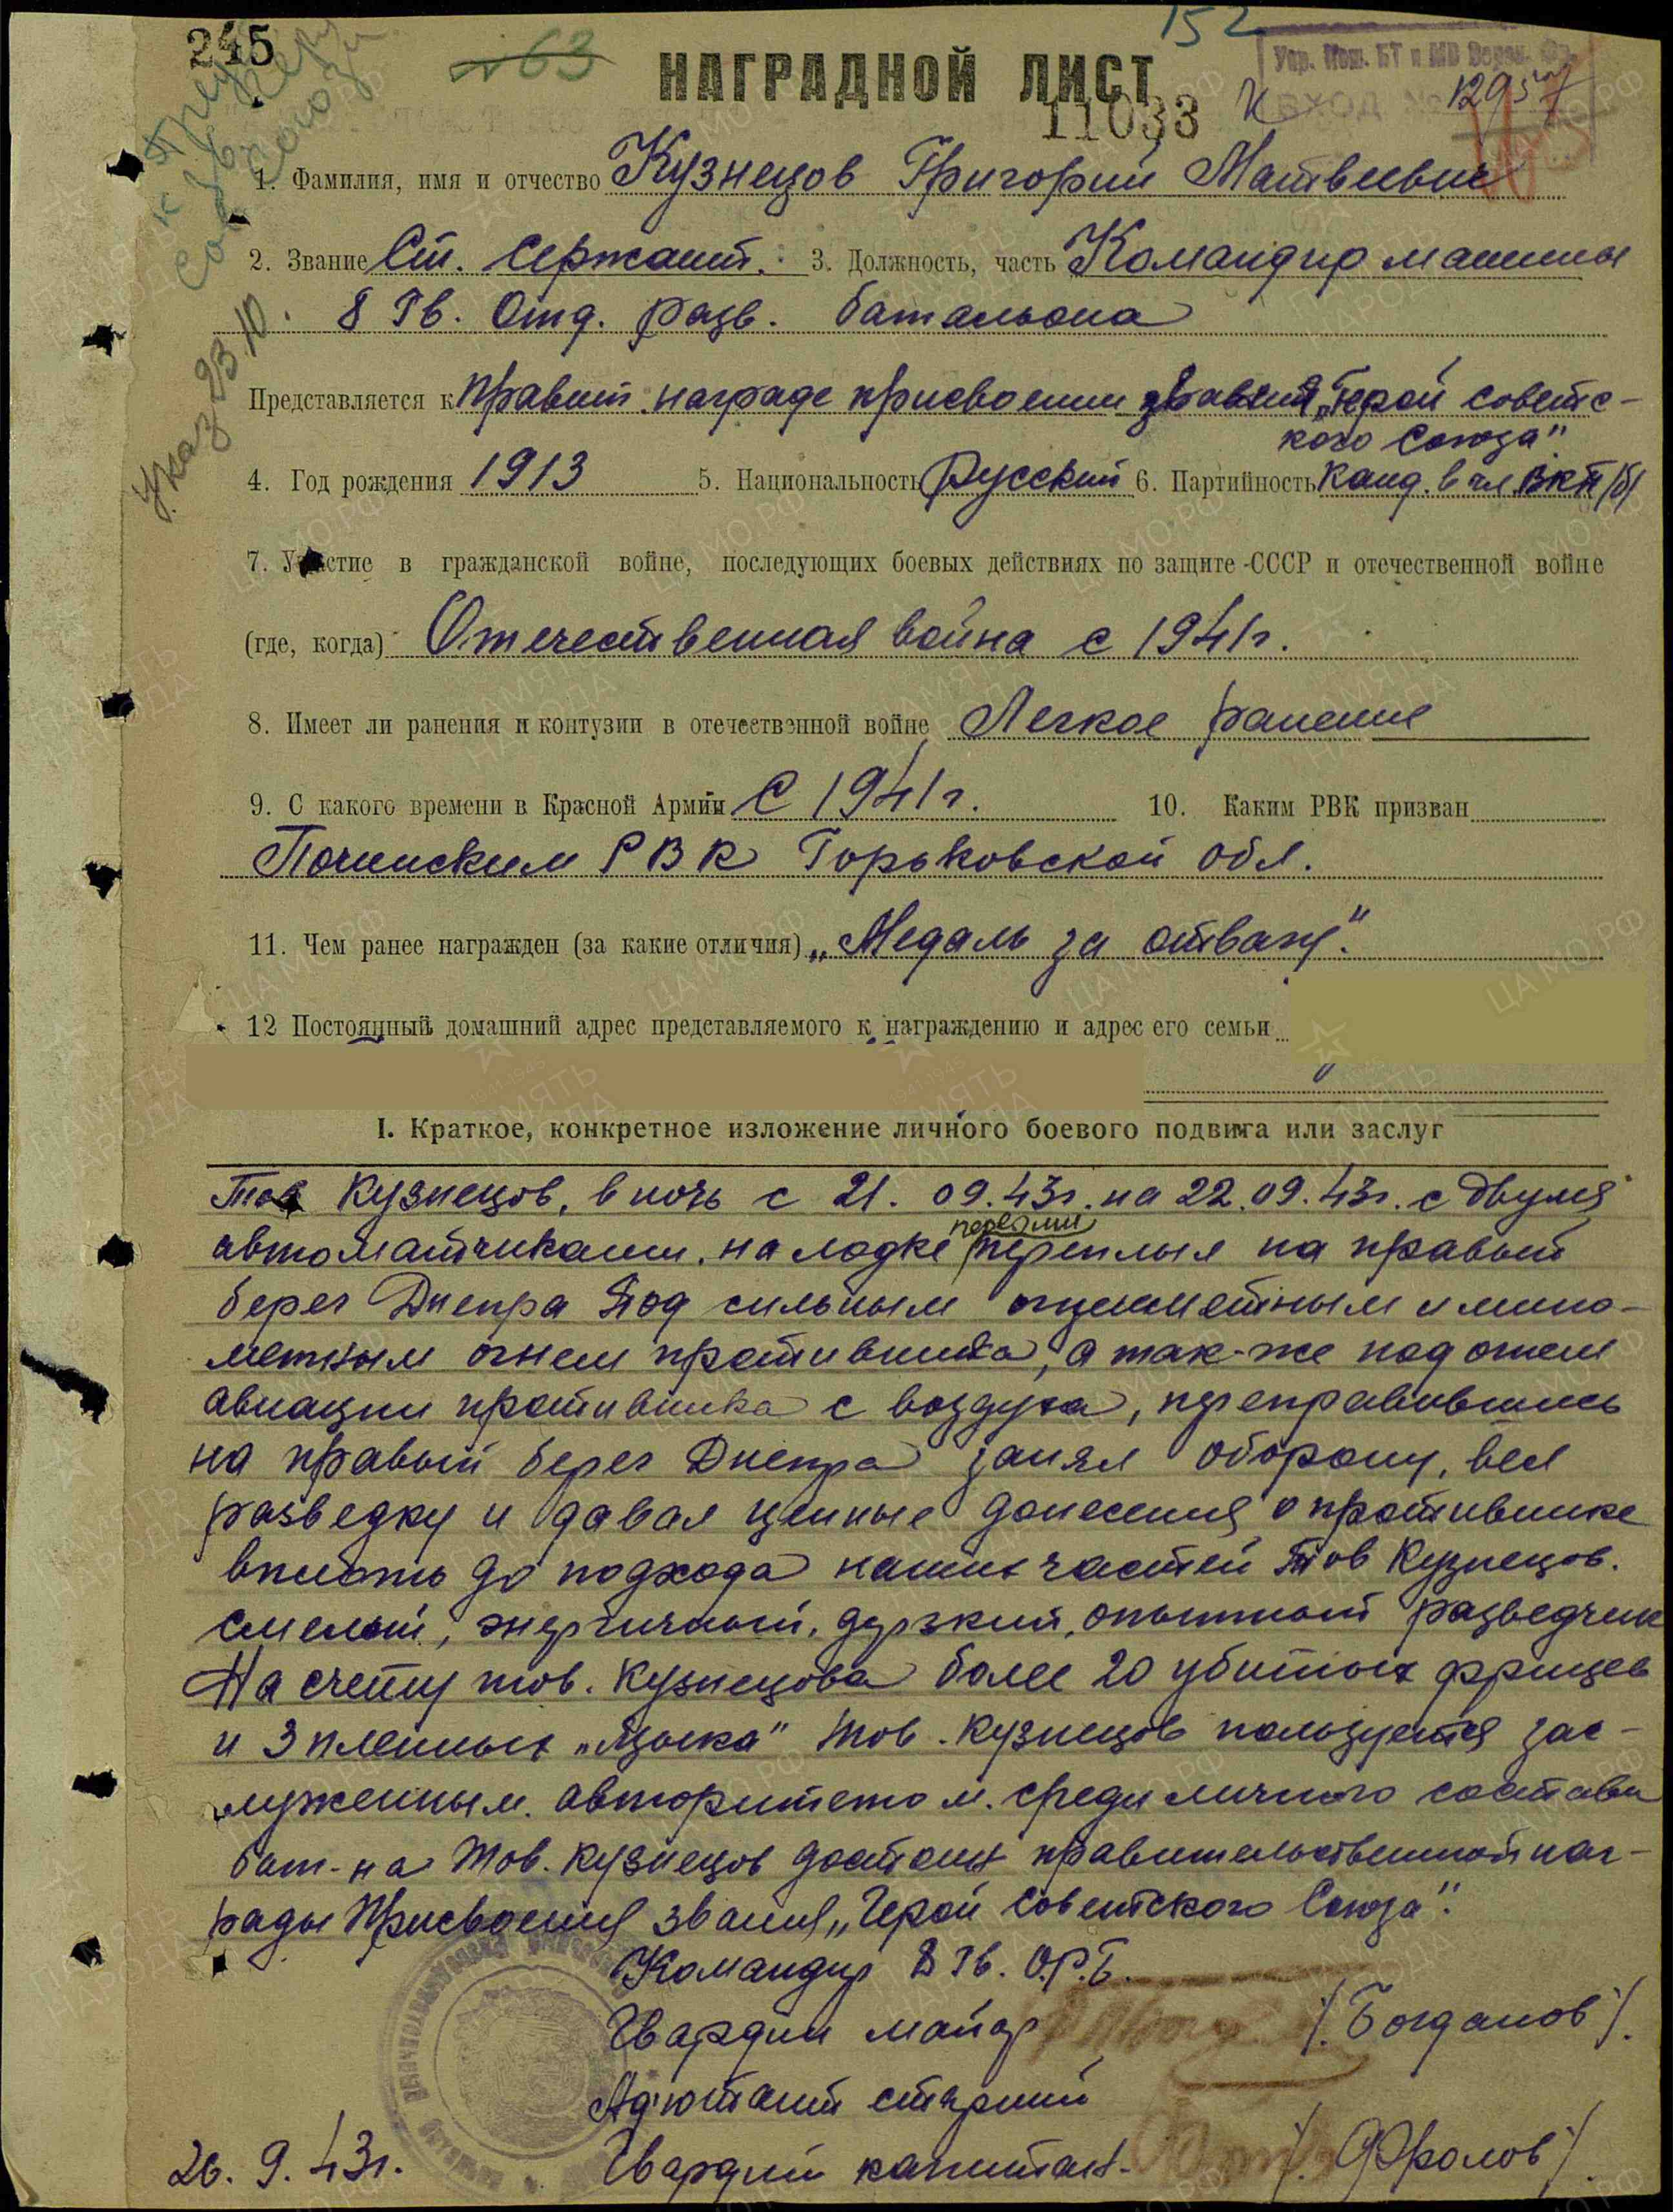 245
№ 63
152
НАГРАДНОЙ ЛИСТ
Упр. Ком. БТ и МВ Ворон. Фр.
ВХОД №
11033
1. Фамилия, имя и отчество Кузнецов Григорий Матвеевич
2. Звание Ст. Сержант. 3. Должность, часть Командир машины
8 Гв. Отд. разв. батальона
Указ 23.10.
Представляется к правит. награде присвоении звания „Герой Советс-
кого Союза"
4. Год рождения 1913 5. Национальность Русский 6. Партийность Канд. в чл. ВКП/б/
7. Участие в гражданской войне, последующих боевых действиях по защите СССР и отечественной войне
(где, когда) Отечественная война с 1941г.
8. Имеет ли ранения и контузии в отечественной войне Легкое ранение
9. С какого времени в Красной Армии С 1941г. 10. Каким РВК призван
Починским РВК Горьковской обл.
11. Чем ранее награжден (за какие отличия) „Медаль за отвагу".
12 Постоянный домашний адрес представляемого к награждению и адрес его семьи
I. Краткое, конкретное изложение личного боевого подвига или заслуг
Тов Кузнецов, в ночь с 21. 09. 43г. на 22. 09. 43г. с двумя
первыми
автоматчиками. на лодке переплыл на правый
берег Днепра Под сильным огнеметным и мино-
метным огнем противника, а так-же под огнем
авиации противника с воздуха, переправившись
на правый берег Днепра занял оборону, вел
разведку и давал ценные донесения о противнике
вплоть до подхода наших частей Тов Кузнецов.
смелый, энергичный, дерзкий, опытный разведчик
На счету тов. Кузнецова более 20 убитых фрицев
и 3 пленных „языка" Тов. Кузнецов пользуется зас-
луженным. авторитетом. среди личного состава
бат-на Тов. Кузнецов достоин правительственной наг-
рады Присвоения звания „Герой Советского Союза".
Командир 8 Гв. О.Р.Б.
Гвардии майор /Богданов/.
Адютант старший
26. 9. 43г. Гвардии капитан- /Фролов/.